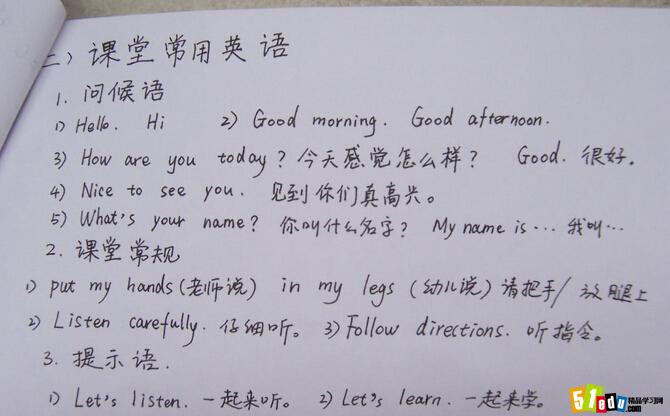 二）课堂常用英语
1. 问候语
1) Hello. Hi 2) Good morning. Good afternoon.
3) How are you today? 今天感觉怎么样? Good. 很好。
4) Nice to see you. 见到你们真高兴。
5) What's your name? 你叫什么名字? My name is … 我叫…
2. 课堂常规
1) put my hands (老师说) in my legs (幼儿说) 请把手/放腿上
2) Listen carefully. 仔细听。 3) Follow directions. 听指令。
3. 提示语.
1) Let's listen. 一起来听。 2) Let's learn. 一起来学。
51edu.com 精品学习网